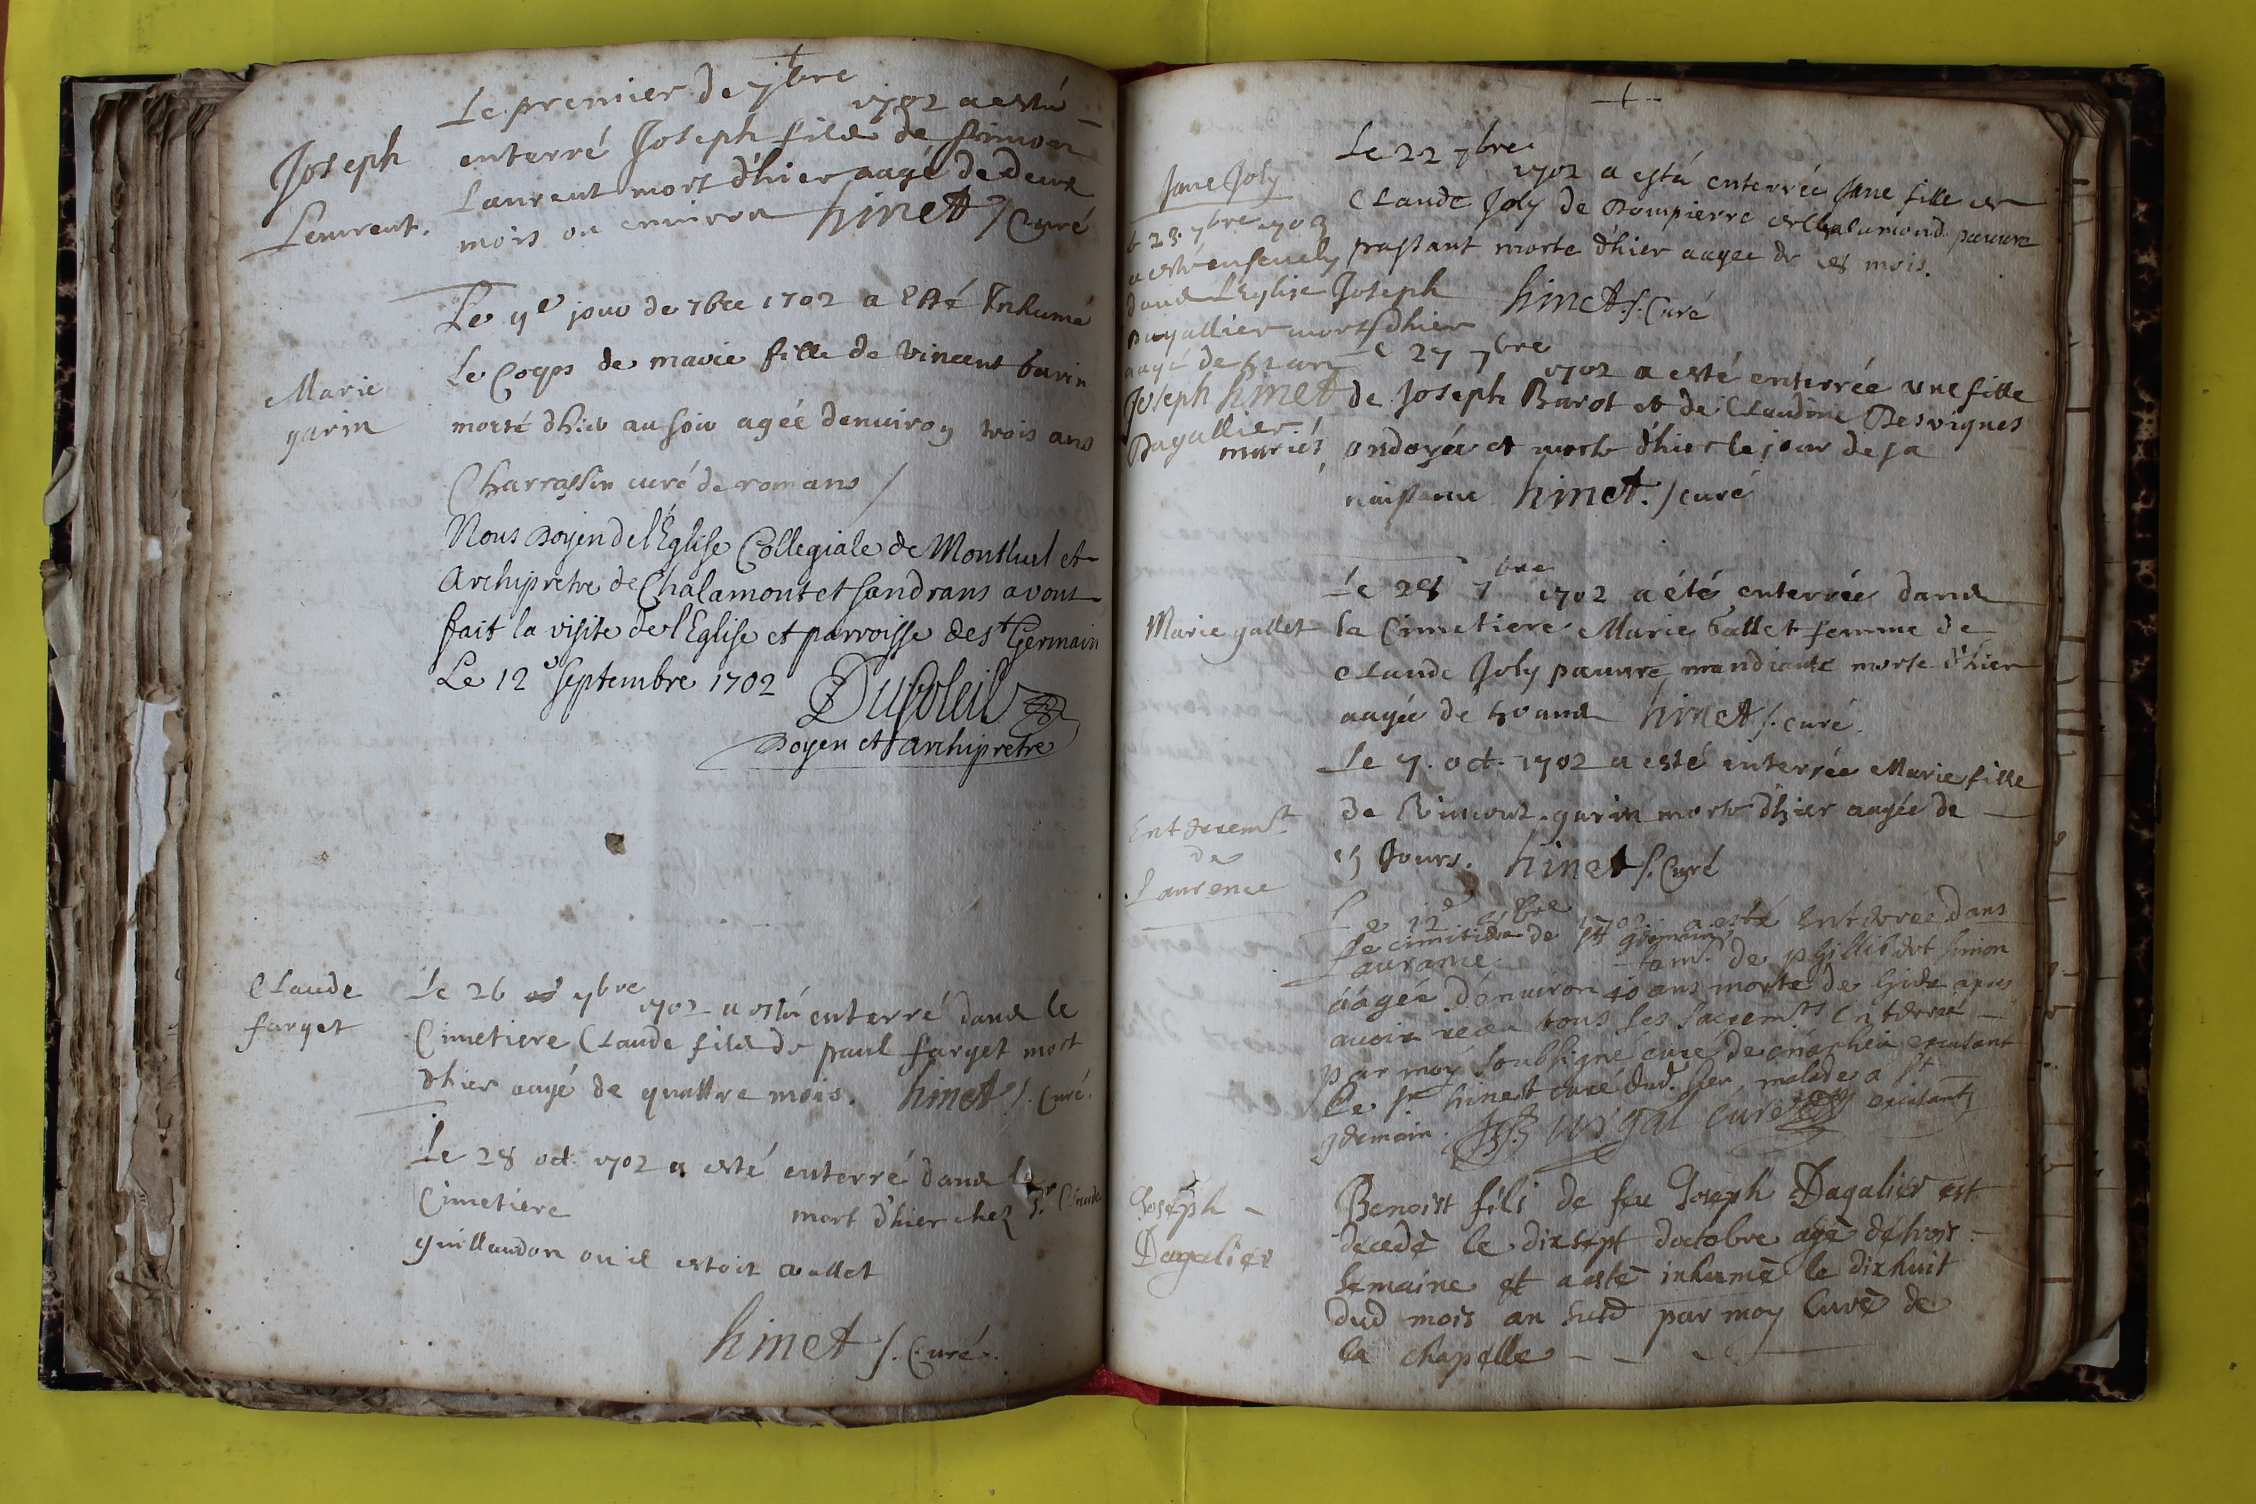 Le premier de 7bre
1702 a esté
Joseph
Leurent.
enterré Joseph fils de simon
Laurent mort d'hier aagé de deux
mois ou environ hinet / Curé
Marie
garin
Le 9e jour de 7bre 1702 a Esté Inhumé
Le Corps de marie fille de Vincent Garin
morte d'hier au soir agée denviron trois ans
Charrassin curé de romans /
Nous Doyen de l'Eglise Collegiale de Montluel et
Archipretre de Chalamont et Sandrans avons
fait la visite de l'Eglise et parroisse de St Germain
Le 12e Septembre 1702
Dusoleil
Doyen et archipretre
Claude
farget
Le 26 7bre
1702 a esté enterré dans le
Cimetiere Claude fils de paul farget mort
dhier aagé de quattre mois. hinet /. Curé.
Le 28 oct. 1702 a esté enterré dans le
Cimetiere mort d'hier chez Sr Claude
guillaudon ou il estoit vallet
hinet /. Curé.
Jane Joly
Le 22 7bre
1702 a esté enterrée Jane fille de
Claude Joly de Dompierre de Chalamond pauvre
passant morte d'hier aagee de mois.
hinet /. Curé
23. 7bre 1702
a esté ensevely
dans L'Eglise Joseph
Dagallier mort d'hier
aagé de
Joseph hinet
Dagallier
mariés
27 7bre
1702 a esté enterrée une fille
de Joseph Barot et de Claudine Desvignes
ondoyée et morte d'hier le jour de sa
naissance hinet. / curé
Marie gallet
Le 28 7bre 1702 a été enterrée dans
la Cimetiere Marie Gallet femme de
Claude Joly pauvre mandiante morte d'hier
aagée de ans hinet /. curé.
Le 7. oct. 1702 a esté enterrée Marie fille
de garin morte d'hier aagée de
15 Jours. hinet /. Curé
Enterremt
de
Laurence
Le 12e 8bre 1702. a esté Enterree dans
Le cimitiere de St germain
Laurance fam. de phillibert simon
áagée d'environ 40 ans morte de hier apres
avoir receu tous ses sacremts Enterré
par moy soubsigné curé de excusant
Le Sr hinet curé dud. lieu, malade a St
germain. curé excusant
Joseph
Dagalier
Benoist fils de feu Joseph Dagalier est
decedé le dixsept doctobre agé de trois
semaine et a esté inhumé le dixhuit
dud mois an susd par moy Curé de
la chapelle